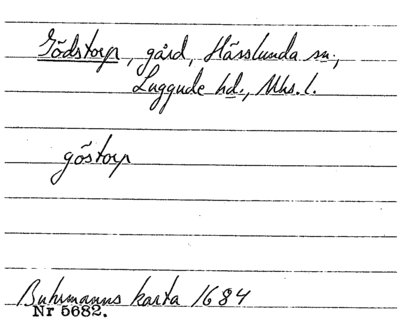 Gödstorp, gård, Hässlunda sn.,
Luggude hd., Mhs. l.
göstorp
Buhrmanns karta 1684
Nr 5682.